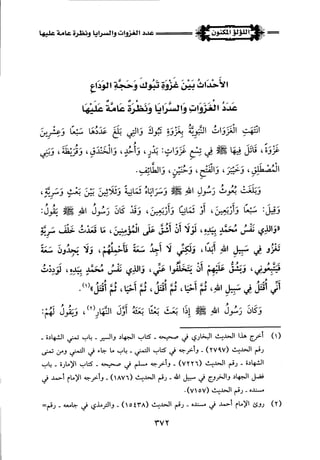 اللؤلؤ المكنون
عدد الغزوات والسرايا ونظرة عامة عليها
الأَحْدَاثُ بَيْنَ غَزْوَةِ تَبُوكَ وَحَجَّةِ الوَدَاعِ
عَدَدُ الغَزَوَاتِ وَالسَّرَايَا وَنَظْرَةٌ عَامَّةٌ عَلَيْهَا
انْتَهَتِ الغَزَوَاتُ النَّبَوِيَّةُ بِغَزْوَةِ تَبُوكَ وَالتِي بَلَغَ عَدَدُهَا سَبْعًا وَعِشْرِينَ
غَزْوَةً، قَاتَلَ فِيهَا ﷺ فِي تِسْعِ غَزَوَاتٍ: بَدْرٍ، وَأُحُدٍ، وَالخَنْدَقِ، وَقُرَيْظَةَ، وَبَنِي
المُصْطَلِقِ، وَخَيْبَرَ، وَالفَتْحِ، وَحُنَيْنٍ، وَالطَّائِفِ.
وَبَلَغَتْ بُعُوثُ رَسُولِ اللهِ ﷺ وَسَرَايَاهُ ثَمَانِيَةً وَثَلَاثِينَ بَيْنَ بَعْثٍ وَسَرِيَّةٍ،
وَقِيلَ: سَبْعًا وَأَرْبَعِينَ، أَوْ ثَمَانِيًا وَأَرْبَعِينَ، وَقَدْ كَانَ رَسُولُ اللهِ ﷺ يَقُولُ:
«وَالذِي نَفْسُ مُحَمَّدٍ بِيَدِهِ، لَوْلَا أَنْ أَشُقَّ عَلَى المُؤْمِنِينَ، مَا قَعَدْتُ خَلْفَ سَرِيَّةٍ
تَغْزُو فِي سَبِيلِ اللهِ أَبَدًا، وَلَكِنِّي لَا أَجِدُ سَعَةً فَأَحْمِلُهُمْ، وَلَا يَجِدُونَ سَعَةً
فَيَتَّبِعُونِي، وَيَشُقُّ عَلَيْهِمْ أَنْ يَتَخَلَّفُوا عَنِّي، وَالذِي نَفْسُ مُحَمَّدٍ بِيَدِهِ، لَوَدِدْتُ
أَنِّي أُقْتَلُ فِي سَبِيلِ اللهِ، ثُمَّ أَحْيَا، ثُمَّ أُقْتَلُ، ثُمَّ أَحْيَا، ثُمَّ أُقْتَلُ»(١).
وَكَانَ رَسُولُ اللهِ ﷺ إِذَا بَعَثَ بَعْثًا بَعَثَهُ أَوَّلَ النَّهَارِ(٢)، وَيَقُولُ لَهُمْ:
(١) أخرج هذا الحديث البخاري في صحيحه - كتاب الجهاد والسير - باب تمني الشهادة -
رقم الحديث (٢٧٩٧) - وأخرجه في كتاب التمني - باب ما جاء في التمني ومن تمنى
الشهادة - رقم الحديث (٧٢٢٦) - وأخرجه مسلم في صحيحه - كتاب الإمارة - باب
فضل الجهاد والخروج في سبيل الله - رقم الحديث (١٨٧٦) - وأخرجه الإمام أحمد في
مسنده - رقم الحديث (٧١٥٧).
(٢) روى الإمام أحمد في مسنده - رقم الحديث (١٥٤٣٨) - والترمذي في جامعه - رقم=
٣٧٢